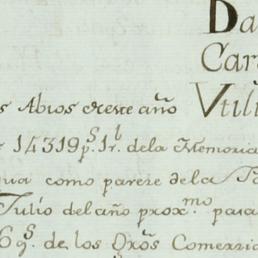 Da
Car
s Abios de este año Vtili
14319 p.s 1 r.l de la Memoria
ua como pareze de la
Julio del año prox.mo pasa
6 g.s de los Gros Comerzia